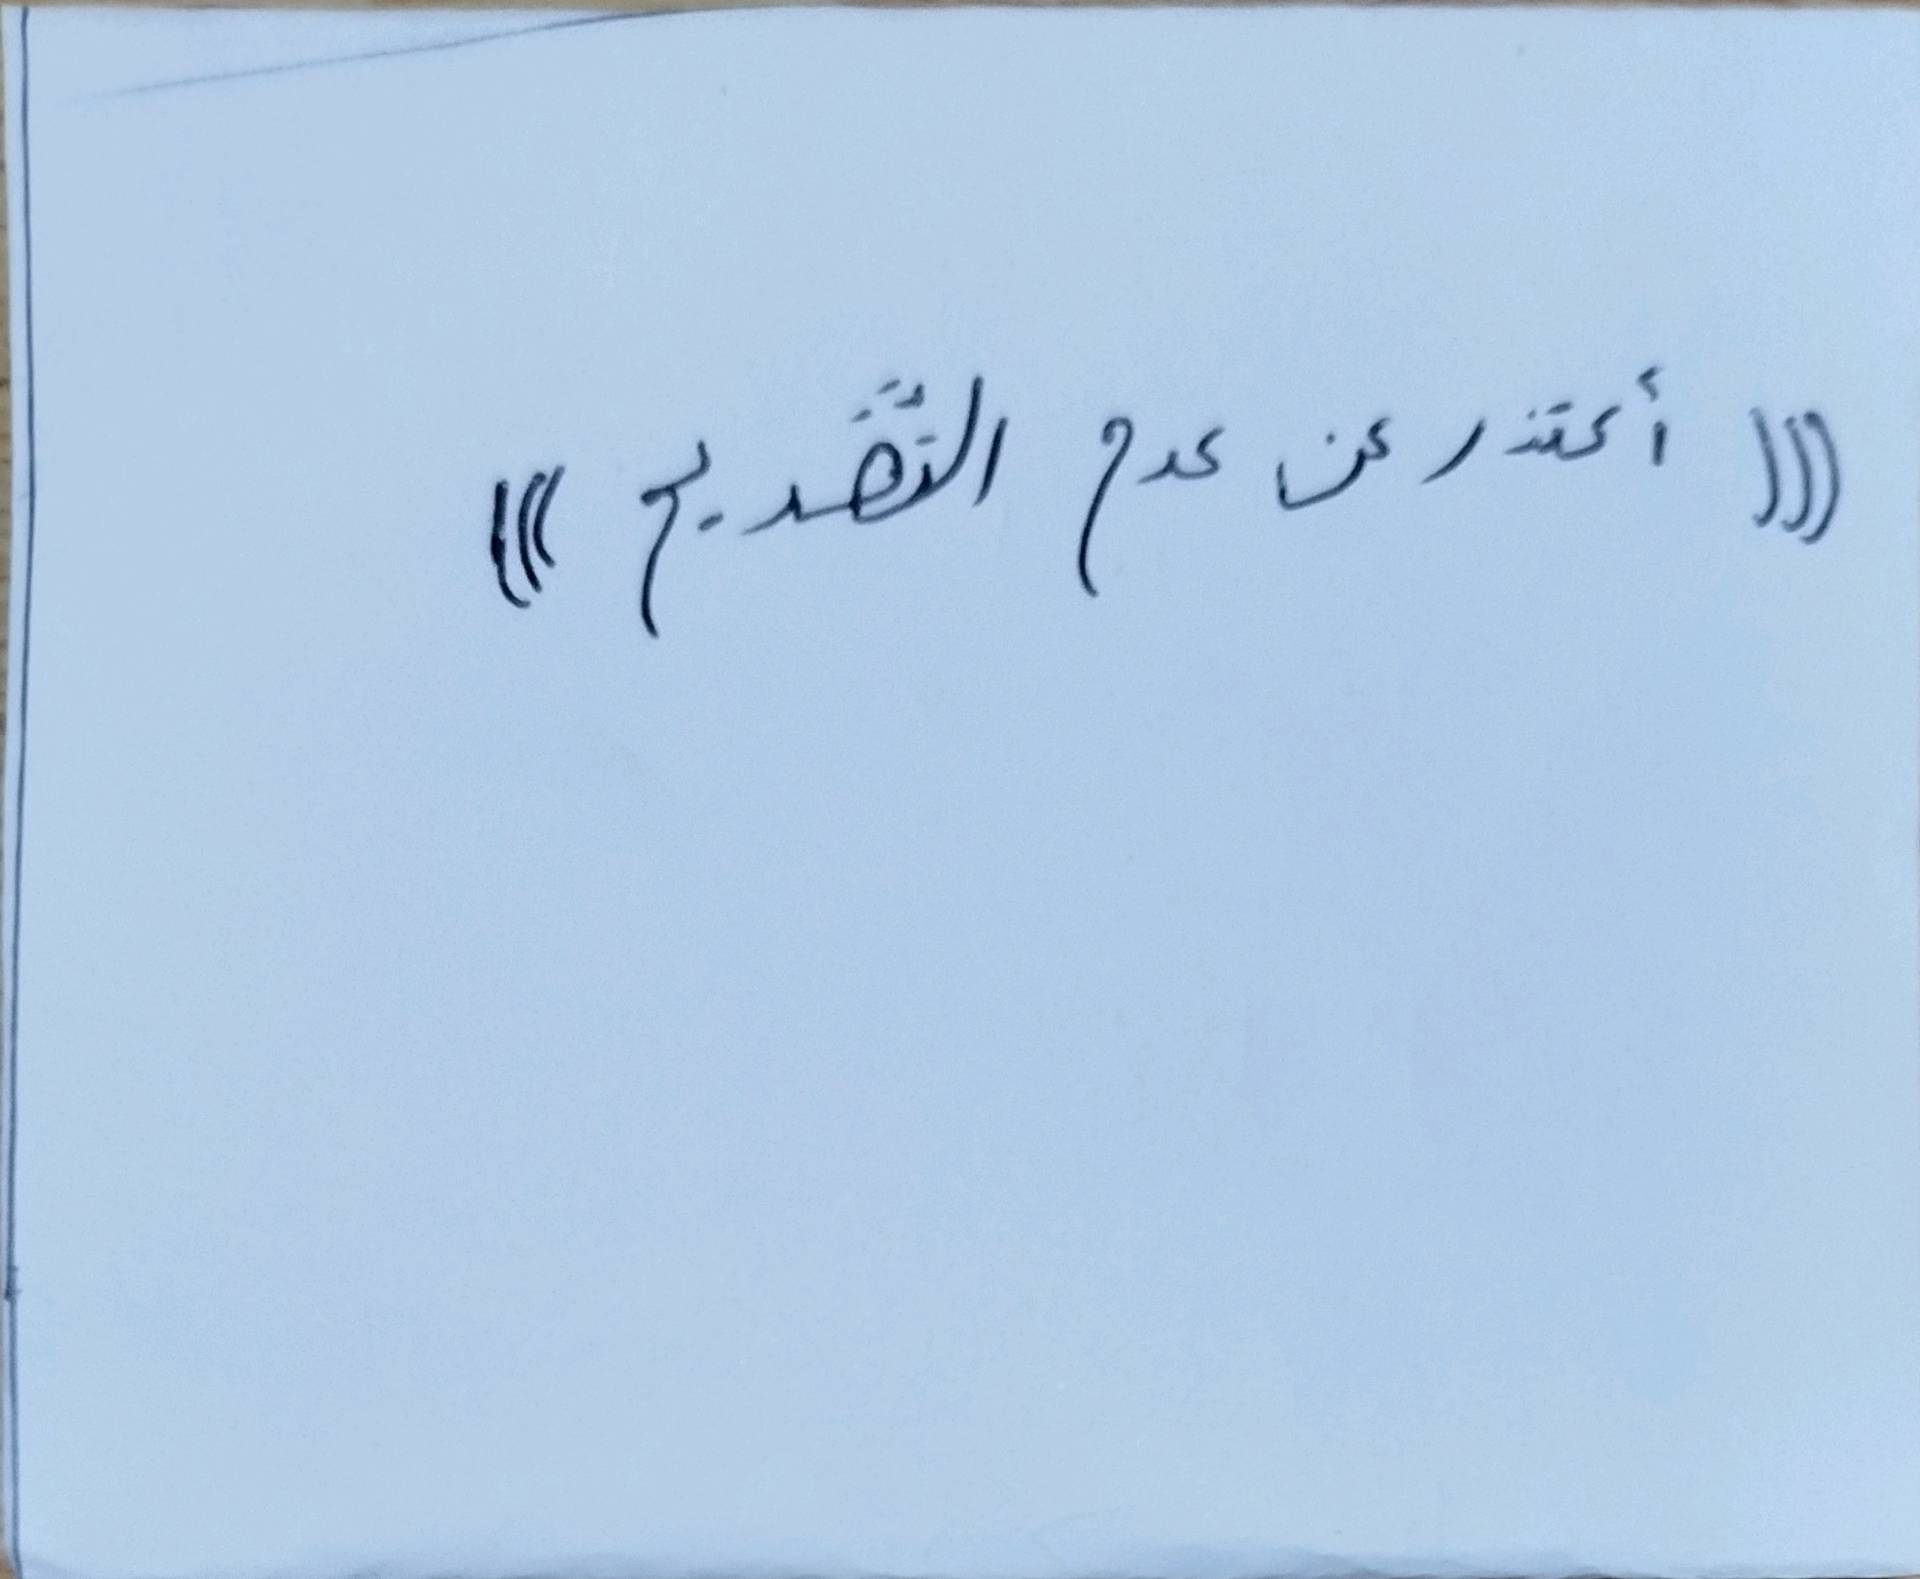 ((( أعتذر عن عدم التَّقديم )))